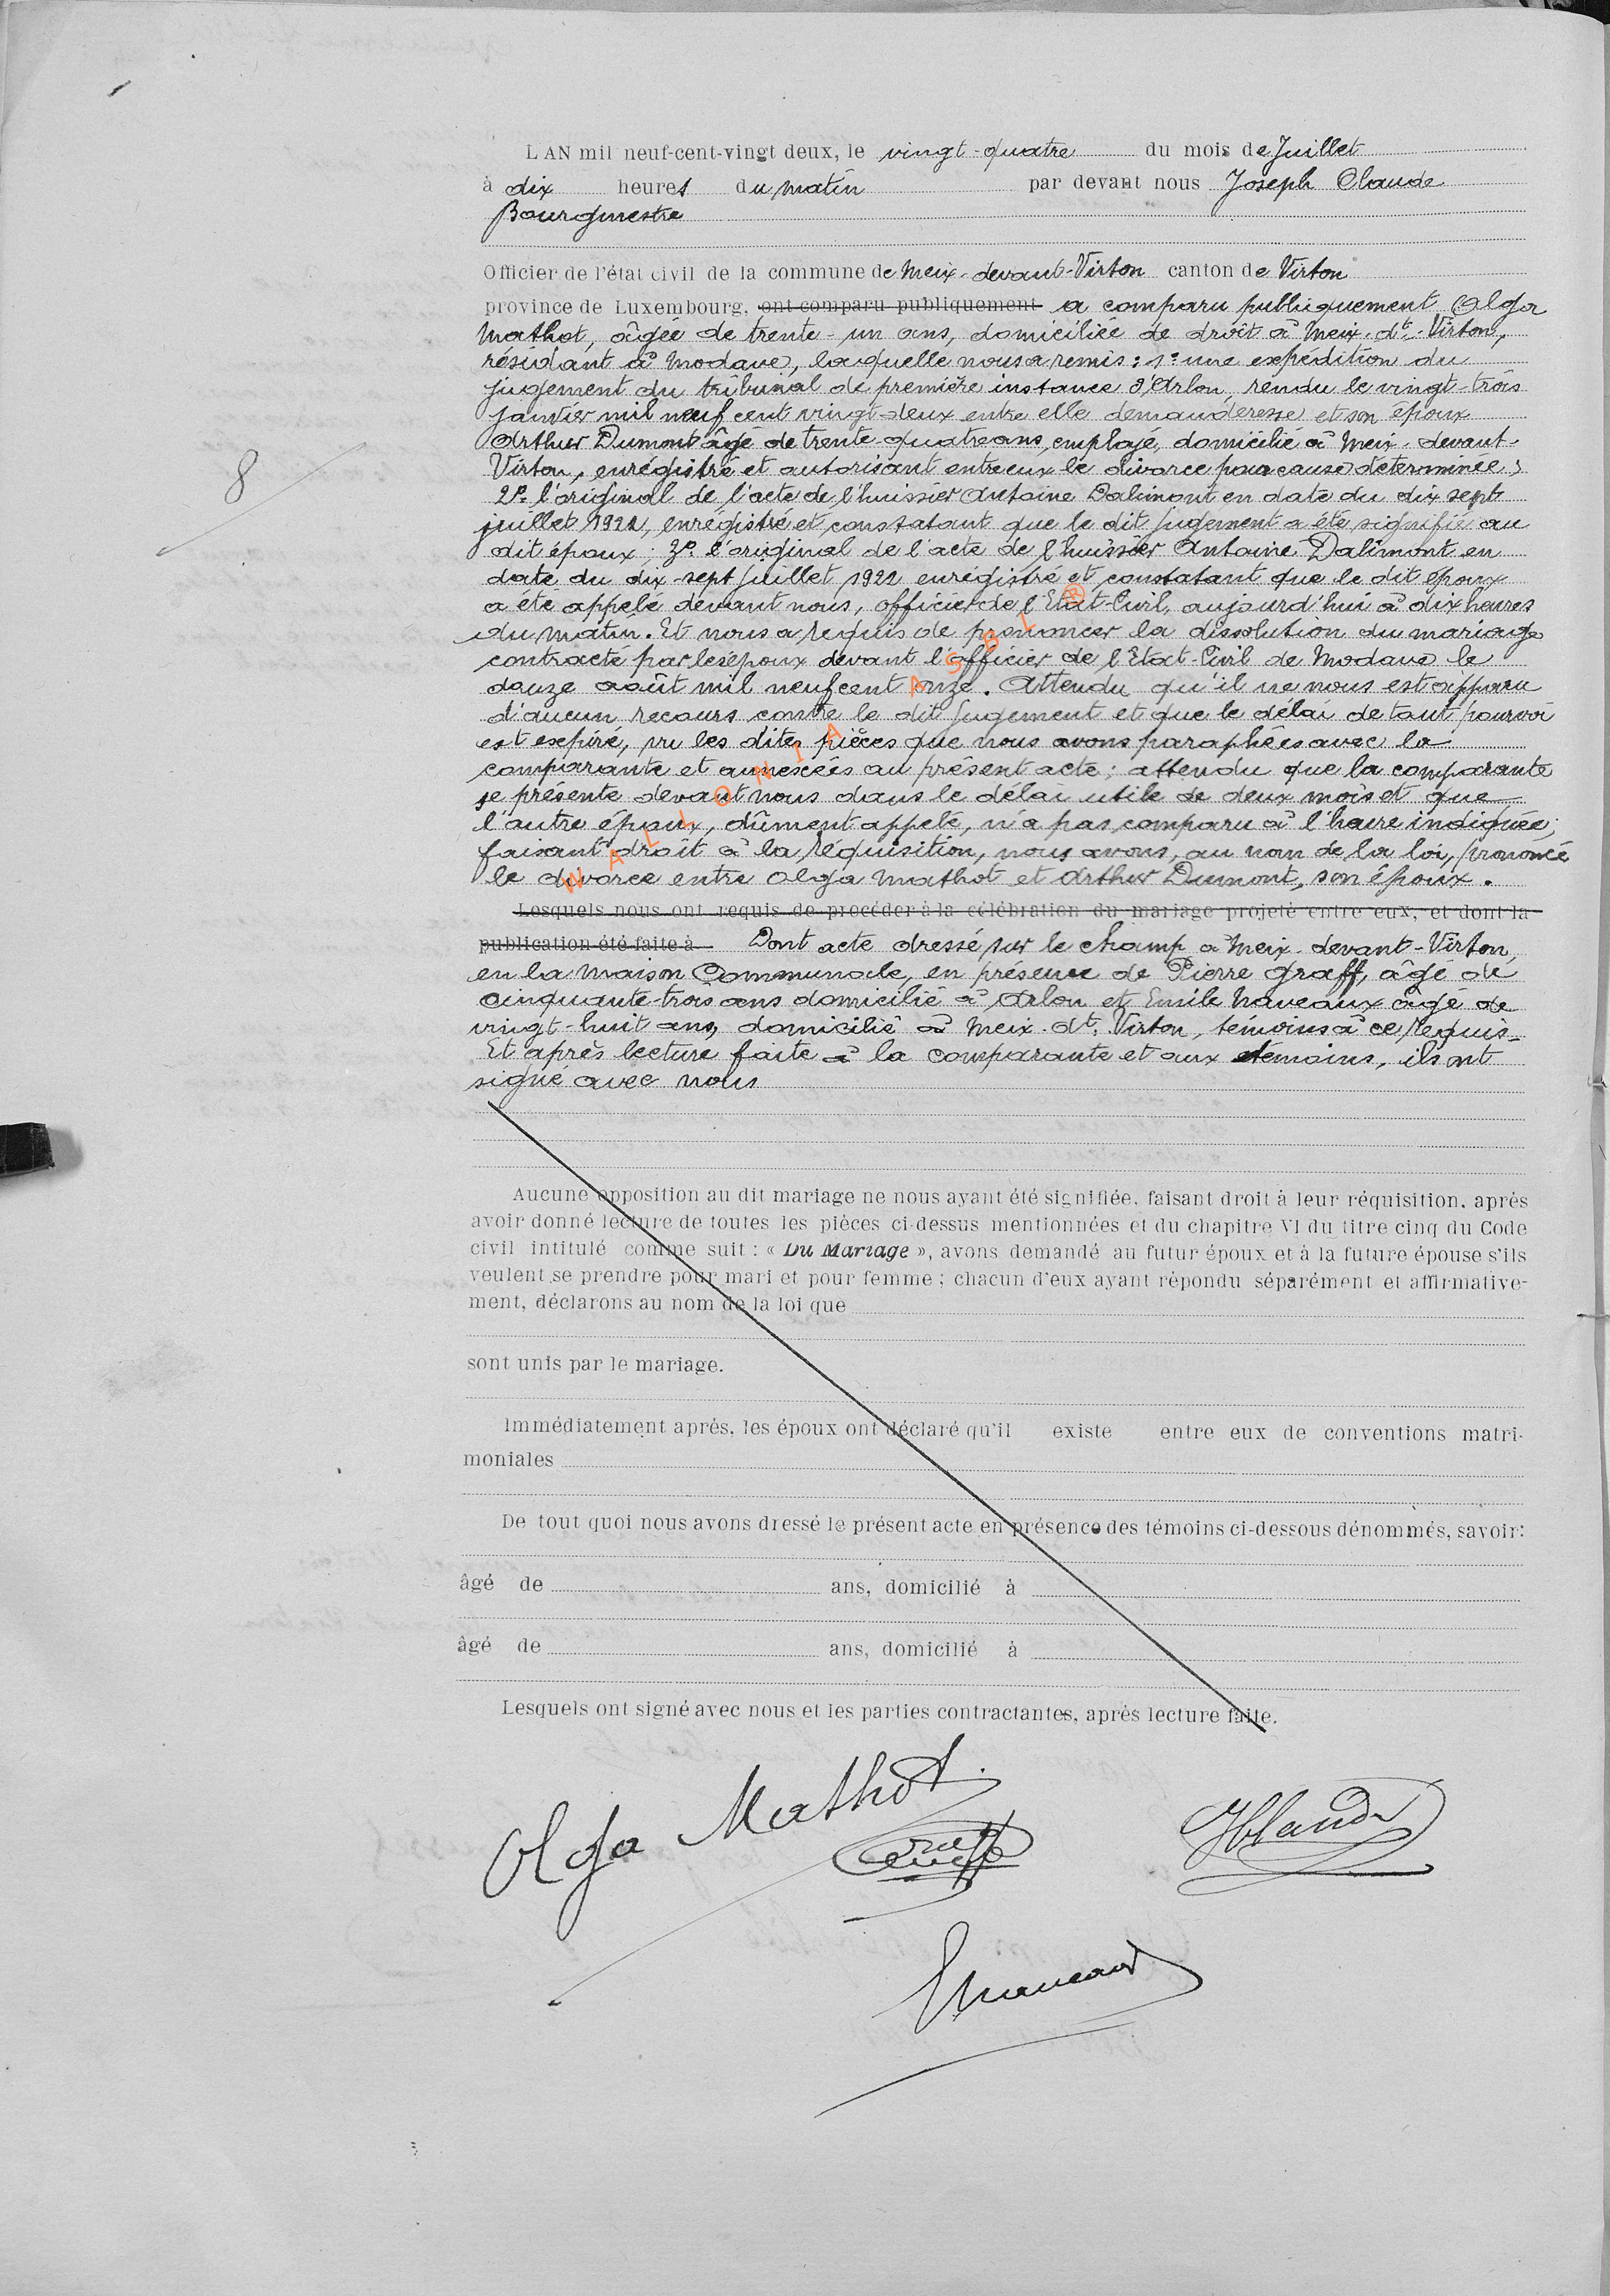 L'AN mil neuf-cent-vingt deux, le vingt-quatre du mois de Juillet
à dix heures du matin par devant nous Joseph Claude
Bourgmestre
Officier de l'état civil de la commune de Meix-devant-Virton canton de Virton
province de Luxembourg, ont comparu publiquement a comparu publiquement Olga
Mathot, âgée de trente-un ans, domiciliée de droit à Meix-dt-Virton,
résidant à Modave, laquelle nous a remis : 1° une expédition du
jugement du tribunal de première instance d'Arlon, rendu le vingt-trois
janvier mil neuf cent vingt-deux entre elle demanderesse et son époux
Arthur Dumont âgé de trente-quatre ans, employé, domicilié à Meix-devant-
Virton, enrégistré et autorisant entre eux le divorce pour cause déterminée ;
2° l'original de l'acte de l'huissier Antoine Dalimont en date du dix sept
juillet 1922, enrégistré et constatant que le dit jugement a été signifié au
dit époux ; 3° l'original de l'acte de l'huissier Antoine Dalimont en
date du dix-sept juillet 1922 enrégistré et constatant que le dit époux
a été appelé devant nous, officier de l'Etat-Civil, aujourd'hui à dix heures
du matin. Et nous a requis de prononcer la dissolution du mariage
contracté par les époux devant l'officier de l'Etat-Civil de Modave le
douze août mil neuf cent onze. Attendu qu'il ne nous est apparu
d'aucun recours contre le dit jugement et que le délai de tout pourvoi
est expiré, vu les dites pièces que nous avons paraphées avec la
comparante et annexées au présent acte ; attendu que la comparante
se présente devant nous dans le délai utile de deux mois et que
l'autre époux, dûment appelé, n'a pas comparu à l'heure indiquée ;
faisant droit à la réquisition, nous avons, au nom de la loi, prononcé
le divorce entre Olga Mathot et Arthur Dumont, son époux.
Lesquels nous ont requis de procéder à la célébration du mariage projeté entre eux, et dont la
publication été faite à Dont acte dressé sur le champ à Meix-devant-Virton,
en la Maison Communale, en présence de Pierre Graff, âgé de
cinquante-trois ans domicilié à Arlon et Emile Naveaux âgé de
vingt-huit ans, domicilié à Meix-dt-Virton, témoins à ce requis.
Et après lecture faite à la comparante et aux témoins, ils ont
signé avec nous
8
WALLONIA ASBL ®
Aucune opposition au dit mariage ne nous ayant été signifiée, faisant droit à leur réquisition, après
avoir donné lecture de toutes les pièces ci-dessus mentionnées et du chapitre VI du titre cinq du Code
civil intitulé comme suit : « Du Mariage », avons demandé au futur époux et à la future épouse s'ils
veulent se prendre pour mari et pour femme ; chacun d'eux ayant répondu séparément et affirmative-
ment, déclarons au nom de la loi que
sont unis par le mariage.
Immédiatement après, les époux ont déclaré qu'il existe entre eux de conventions matri-
moniales
De tout quoi nous avons dressé le présent acte en présence des témoins ci-dessous dénommés, savoir :
âgé de ans, domicilié à
âgé de ans, domicilié à
Lesquels ont signé avec nous et les parties contractantes, après lecture faite.
Olga Mathot.
Graff
JClaude
ENaveaux